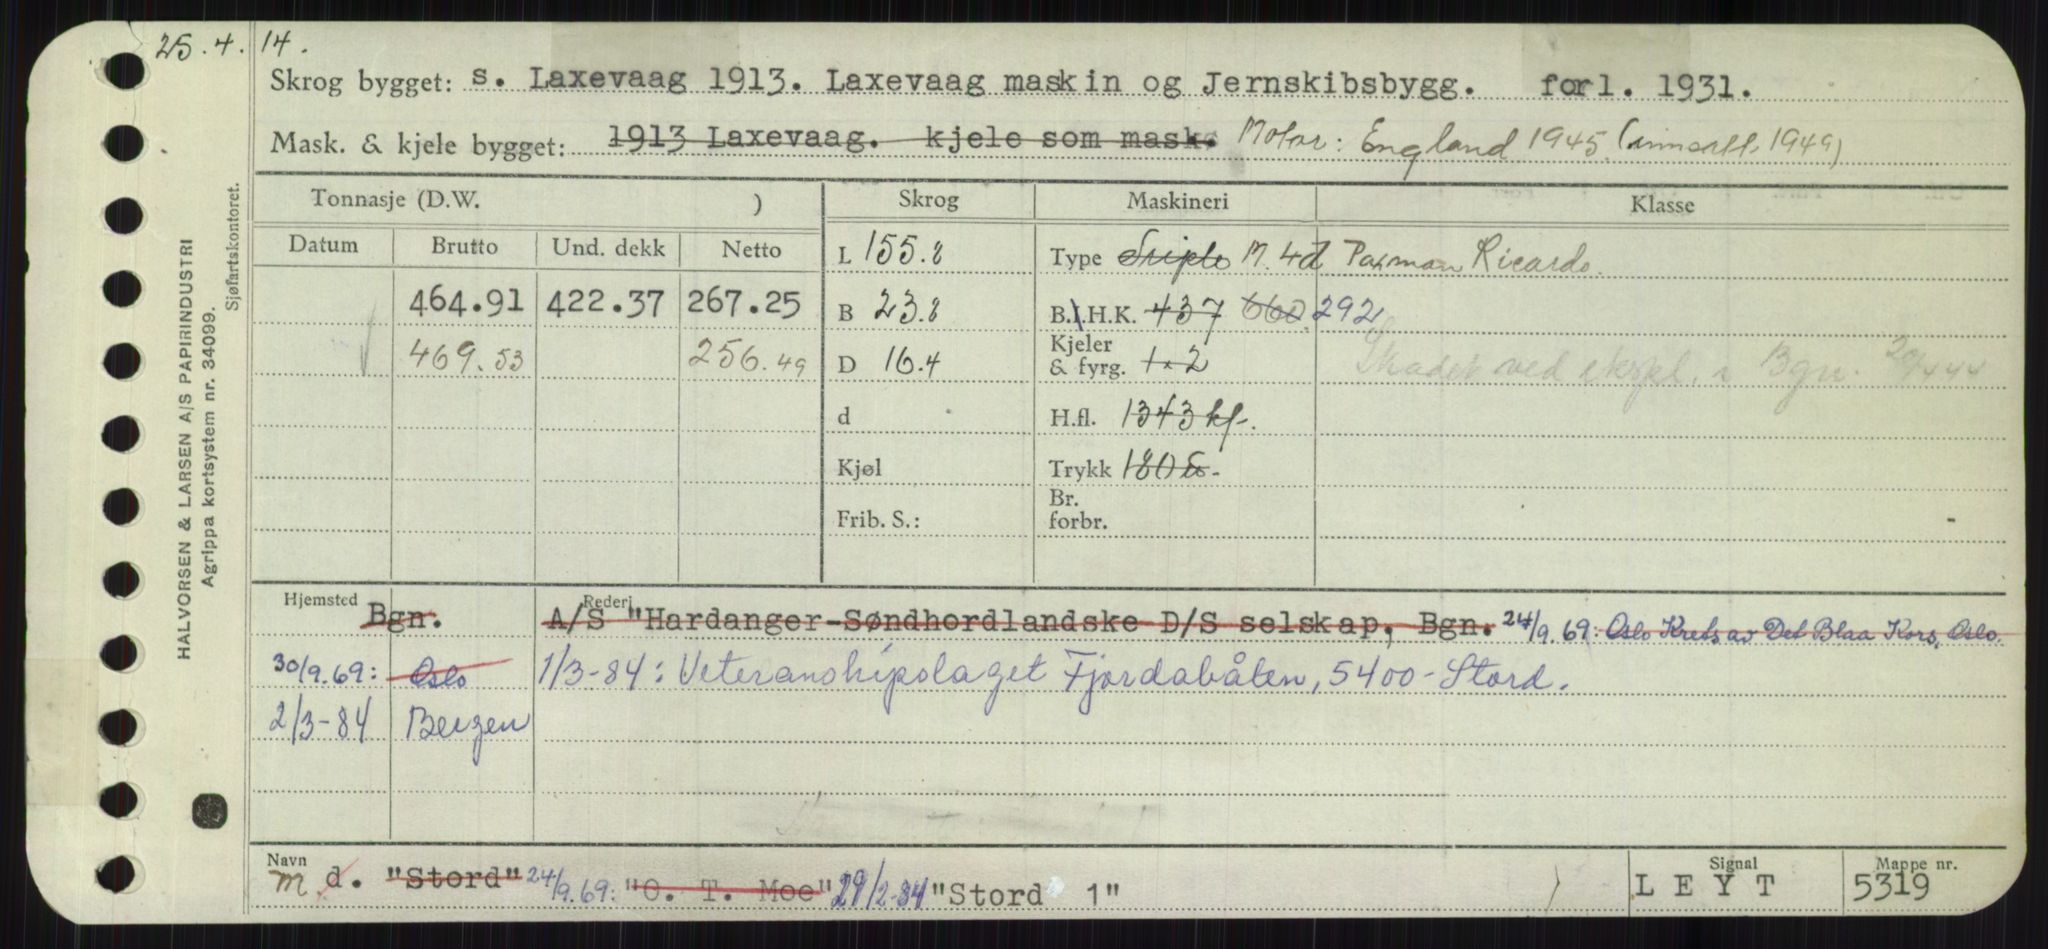 25.4.14.
Skrog bygget: s. Laxevaag 1913. Laxevaag maskin og Jernskibsbygg. forl. 1931.
Mask. & kjele bygget: 1913 Laxevaag. kjele som mask. Motor: England 1945 (innsatt 1949)
Tonnasje (D.W. ) Skrog Maskineri Klasse
Datum Brutto Und. dekk Netto L 155.8 Type Triple M. 4d Paxman Ricardo.
464.91 422.37 267.25 B 23.8 B.I.H.K. 437 660 292
469.53 256.49 D 16.4 Kjeler & fyrg. 1-2 Skadet ved ekspl. i Bgn. 20/4 44
d H.fl. 1343 kf.
Kjøl Trykk 180
Frib. S.: Br. forbr.
Hjemsted Rederi
Bgn. A/S "Hardanger-Søndhordlandske D/S selskap, Bgn. 24/9.69: Oslo Krets av Det Blaa Kors, Oslo.
30/9.69: Oslo 1/3-84: Veteranskipslaget Fjordabåten, 5400-Stord.
2/3-84 Bergen
Navn Signal Mappe nr.
m d. "Stord" 24/9.69: "O. T. Moe" 29/2-84 "Stord 1" LEYT 5319
HALVORSEN & LARSEN A/S PAPIRINDUSTRI
Agrippa kortsystem nr. 34099.
Sjøfartskontoret.